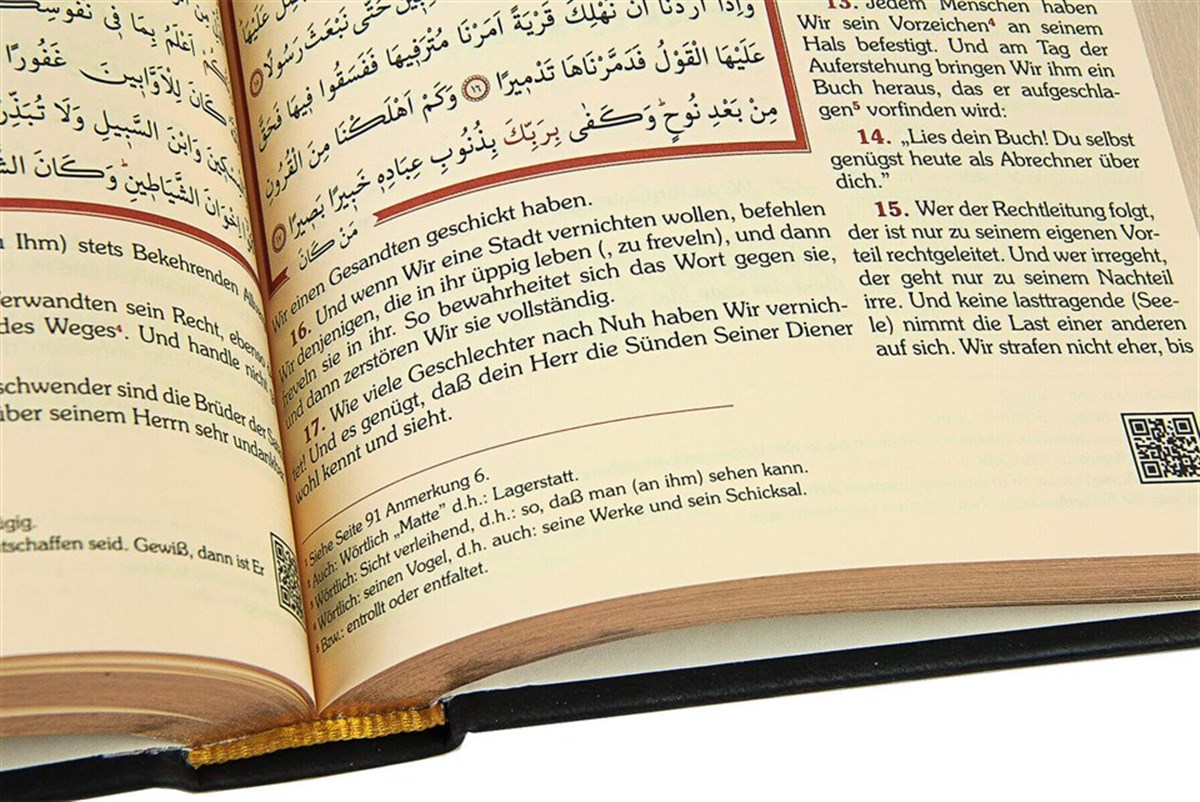 أَعْلَمُ بِمَا فِي نُفُوسِكُمْ
كَانَ لِلْاَوَّابِينَ غَفُورًا
وَابْنَ السَّبِيلِ وَلَا تُبَذِّرْ
اِخْوَانَ الشَّيَاطِينِ وَكَانَ
Ihm) stets Bekehrenden
erwandten sein Recht, ebenso
des Weges⁴. Und handle nicht
schwender sind die Brüder der
über seinem Herrn sehr undankbar
tschaffen seid. Gewiß, dann ist Er
حَتّٰى نَبْعَثَ رَسُولًا ١٥
وَاِذَا اَرَدْنَا اَنْ نُهْلِكَ قَرْيَةً اَمَرْنَا مُتْرَفِيهَا فَفَسَقُوا فِيهَا فَحَقَّ
عَلَيْهَا الْقَوْلُ فَدَمَّرْنَاهَا تَدْمِيرًا ١٦ وَكَمْ اَهْلَكْنَا مِنَ الْقُرُونِ
مِنْ بَعْدِ نُوحٍ وَكَفٰى بِرَبِّكَ بِذُنُوبِ عِبَادِهِ خَبِيرًا بَصِيرًا ١٧
مَنْ كَانَ
13. Jedem Menschen haben
Wir sein Vorzeichen⁴ an seinem
Hals befestigt. Und am Tag der
Auferstehung bringen Wir ihm ein
Buch heraus, das er aufgeschla-
gen⁵ vorfinden wird:
14. „Lies dein Buch! Du selbst
genügst heute als Abrechner über
dich.”
15. Wer der Rechtleitung folgt,
der ist nur zu seinem eigenen Vor-
teil rechtgeleitet. Und wer irregeht,
der geht nur zu seinem Nachteil
irre. Und keine lasttragende (See-
le) nimmt die Last einer anderen
auf sich. Wir strafen nicht eher, bis
Wir einen Gesandten geschickt haben.
16. Und wenn Wir eine Stadt vernichten wollen, befehlen
Wir denjenigen, die in ihr üppig leben (, zu freveln), und dann
freveln sie in ihr. So bewahrheitet sich das Wort gegen sie,
und dann zerstören Wir sie vollständig.
17. Wie viele Geschlechter nach Nuh haben Wir vernich-
tet! Und es genügt, daß dein Herr die Sünden Seiner Diener
wohl kennt und sieht.
¹ Siehe Seite 91 Anmerkung 6.
² Auch: Wörtlich „Matte” d.h.: Lagerstatt.
³ Wörtlich: Sicht verleihend, d.h.: so, daß man (an ihm) sehen kann.
⁴ Wörtlich: seinen Vogel, d.h. auch: seine Werke und sein Schicksal.
⁵ Bzw.: entrollt oder entfaltet.